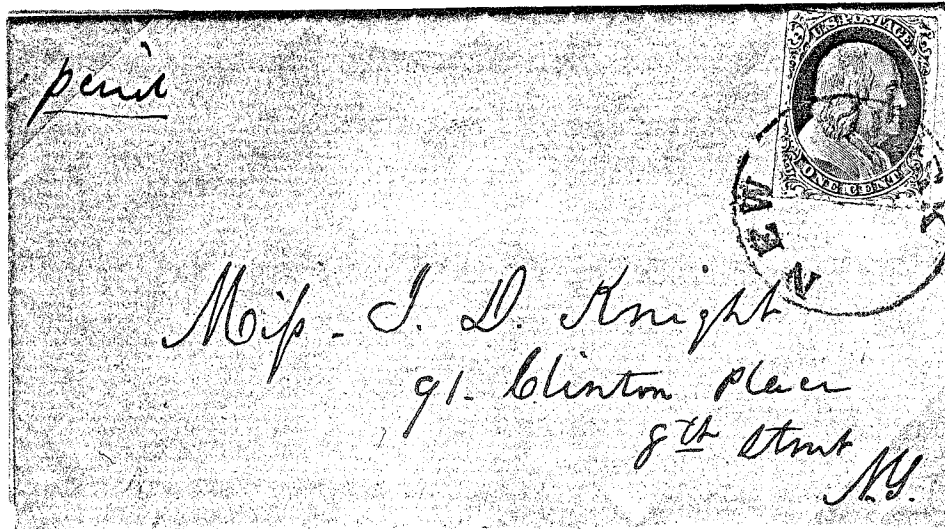 paid
U.S. POSTAGE
ONE CENT
NEW
Miſs - J. D. Knight
91. Clinton Place
8th Street
N.Y.